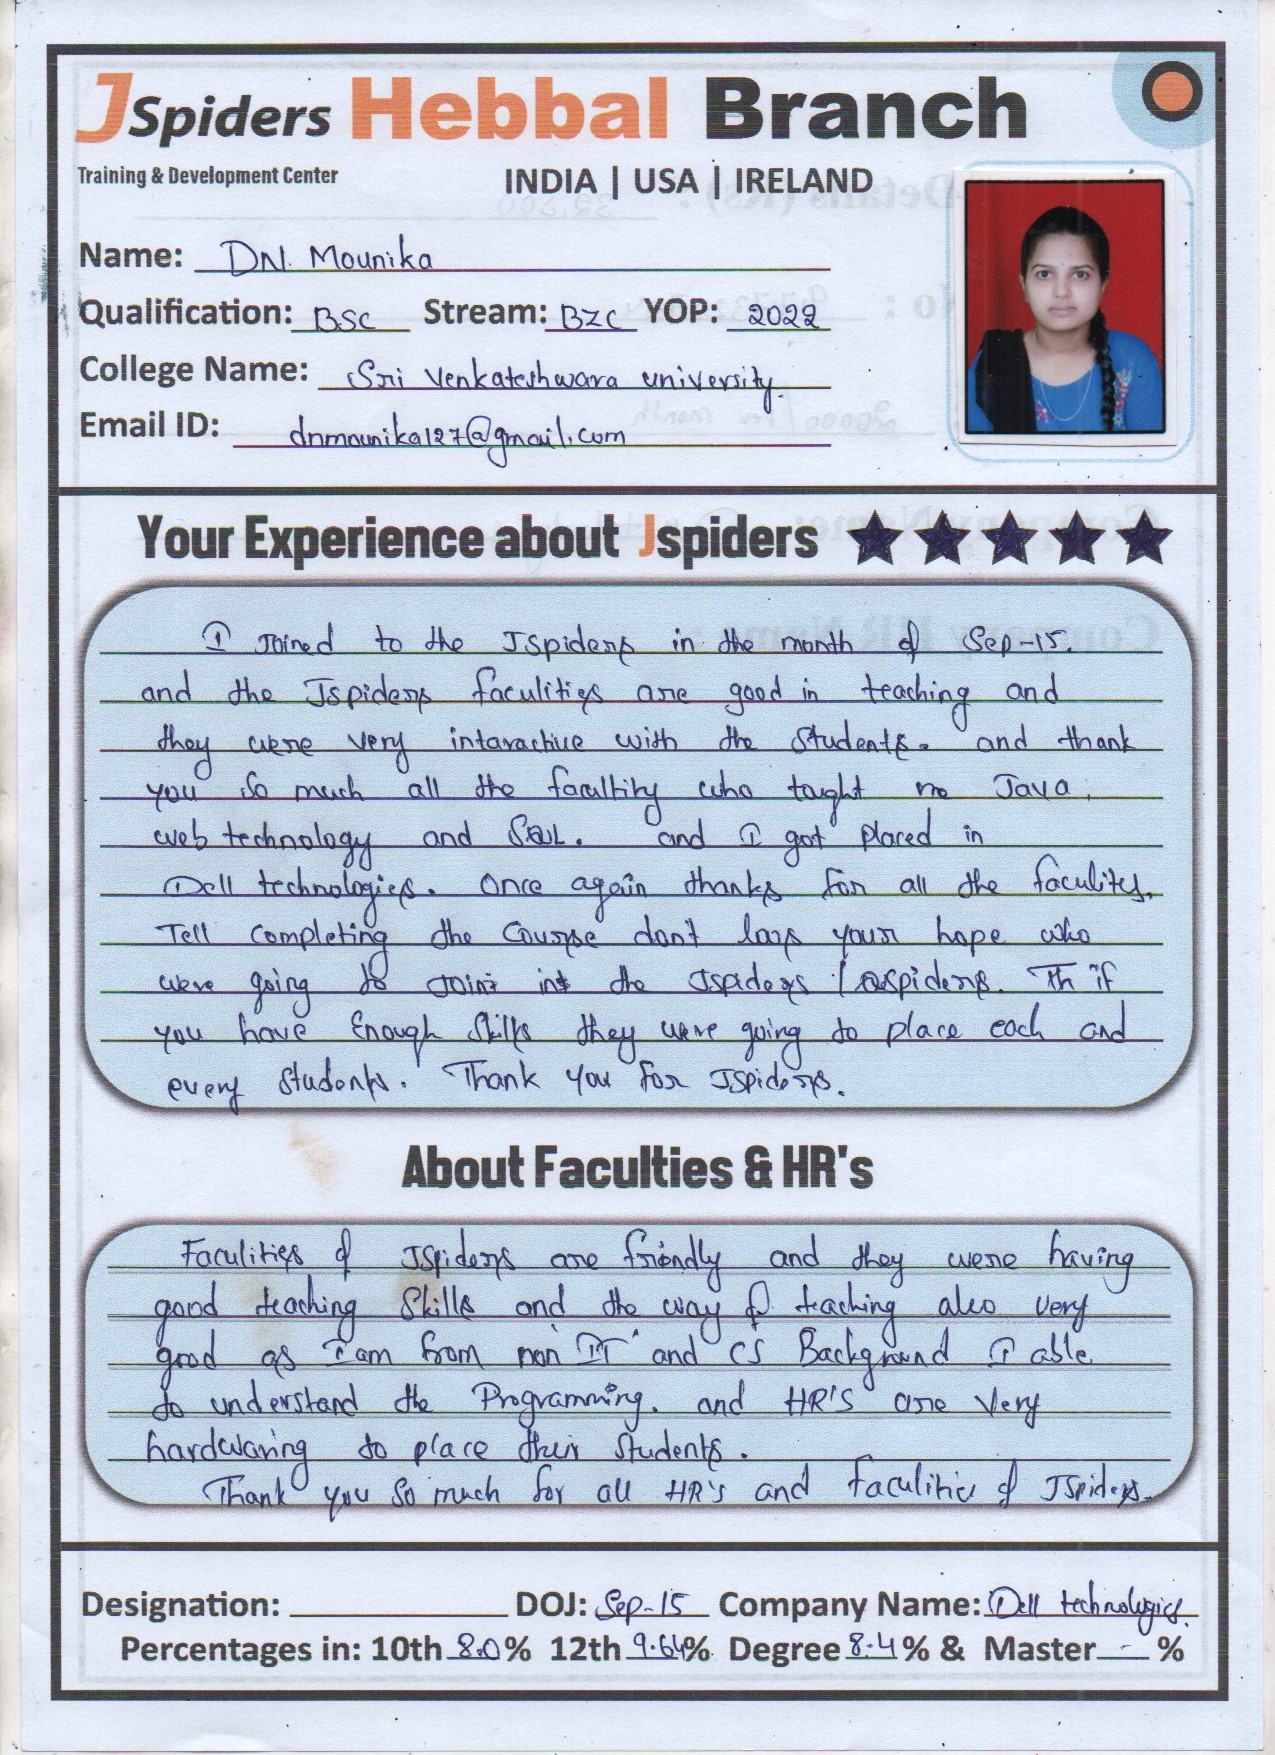 JSpiders Hebbal Branch
Training & Development Center
INDIA | USA | IRELAND
Name: DN. Mounika
Qualification: BSC Stream: BZC YOP: 2022
College Name: Sri Venkateshwara university.
Email ID: dnmounika127@gmail.com
Your Experience about Jspiders
I Joined to the JSpiders in the month of Sep-15.
and the Jspiders faculities are good in teaching and
they were very intaractive with the students. and thank
you so much all the facultity who taught me Java,
web technology and SQL. and I got placed in
Dell technologies. Once again thanks for all the faculity,
Tell completing the Course don't loss your hope who
were going to Joint int the Jspiders / Qspiders. Th if
you have Enough Skills they were going to place each and
every students. Thank You for JSpiders.
About Faculties & HR's
Faculities of JSpiders are friendly and they were having
good teaching Skills and the way of teaching also very
good as I am from non IT and CS Background I able
to understand the Programming. and HR'S are Very
hardwaring to place their students.
Thank you So much for all HR's and Faculities of JSpiders.
Designation: DOJ: Sep-15 Company Name: Dell technologies.
Percentages in: 10th 8.0% 12th 9.64% Degree 8.4% & Master - %